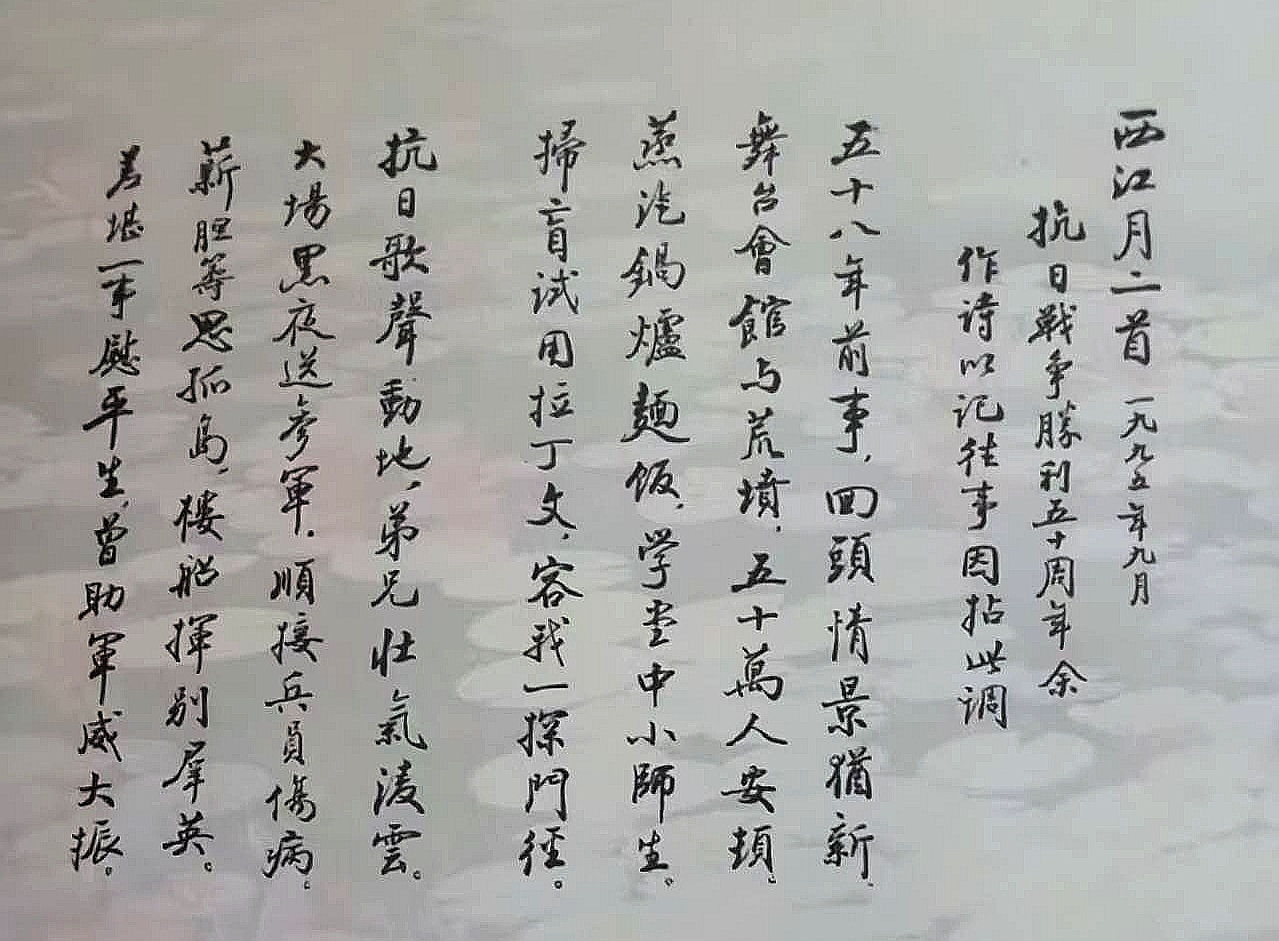 西江月二首 一九九五年九月
抗日戰争勝利五十周年余
作诗以记往事因拈此调
五十八年前事，回頭情景猶新。
舞台會館与荒墳，五十萬人安頓。
蒸汽鍋爐麵饭，学堂中小師生。
掃盲試用拉丁文，容我一探門徑。
抗日歌聲動地，弟兄壮氣凌雲。
大場黑夜送参軍，順接兵員傷病。
薪胆筹思孤島，楼船揮别羣英。
差堪一事慰平生，曾助軍威大振。